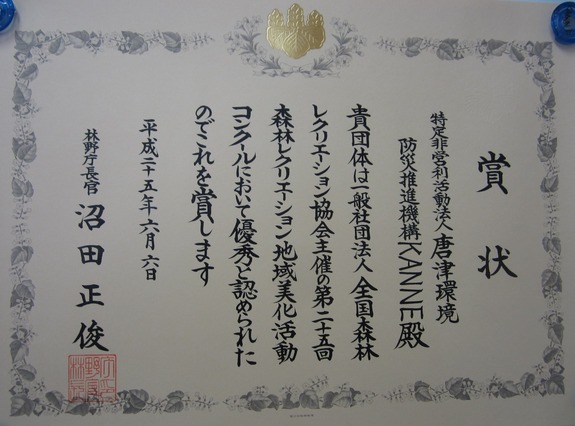 賞状
特定非営利活動法人唐津環境
防災推進機構KANNE殿
貴団体は一般社団法人全国森林
レクリエーション協会主催の第二十五回
森林レクリエーション地域美化活動
コンクールにおいて優秀と認められた
のでこれを賞します
平成二十五年六月六日
林野庁長官 沼田正俊